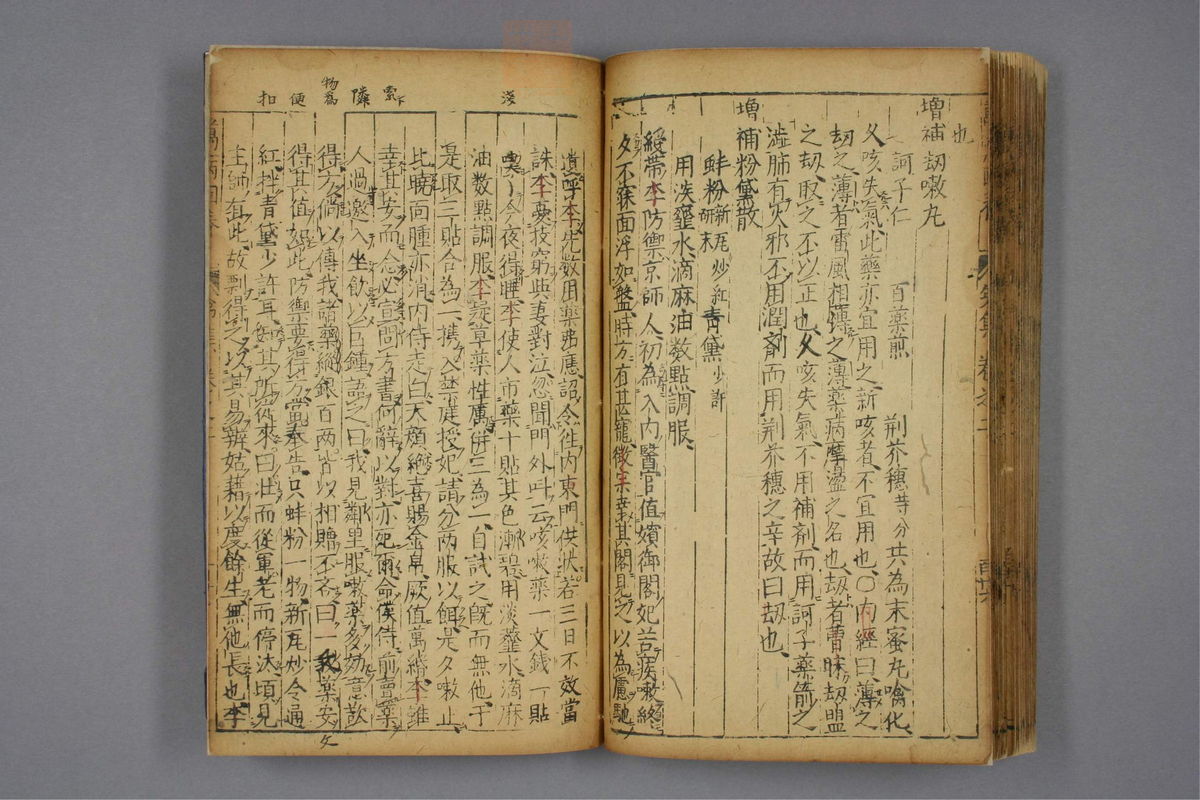 也
增補 劫嗽丸
訶子仁 百藥煎 荊芥穗等分共為末蜜丸噙化
久咳失氣此藥亦宜用之新咳者不宜用也〇內經曰薄之
劫之薄者雷風相薄之薄藥病摩盪之名也劫者曹昧劫盟
之劫取之不以正也久咳失氣不用補劑而用訶子藥煎之
澁肺有火邪不用潤劑而用荊芥穗之辛故曰劫也
增補粉黛散
蚌粉新瓦炒紅研末 青黛少許
用淡虀水滴麻油數點調服
綬帶李防禦京師人初為入內醫官值嬪御閣妃苦痰嗽終
夕不寐面浮如盤時方有甚寵徽宗幸其閣見之以為慮馳
遣呼李先數用藥弗應詔令往內東門供狀若三日不效當
誅李憂技窮與妻對泣忽聞門外叫云咳嗽藥一文錢一貼
喫了今夜得睡李使人市藥十貼其色漸碧用淡虀水滴麻
油數點調服李疑草藥性厲併三為一自試之旣而無他于
是取三貼合為一攜入禁庭授妃請分兩服以餌是夕嗽止
比曉面腫亦消內侍走白天顏絕喜賜金帛厥值萬緡李雖
幸其安而念必宣問方書何辭以對亦死爾命僕侍前賣藥
人過邀入坐飲以巨鍾語之曰我見鄰里服嗽藥多効意欲
得方倘以傳我諸藥縂銀百兩皆以相贈不吝曰一我藥安
得其值如此防禦要得方當奉告只蚌粉一物新瓦炒令通
紅拌青黛少許耳叩其所從來曰壯而從軍老而停汰頃見
主帥有此故剽得之以其易辨姑藉以度餘生無他長也李
淺
索
隣
物為
便
扣
文